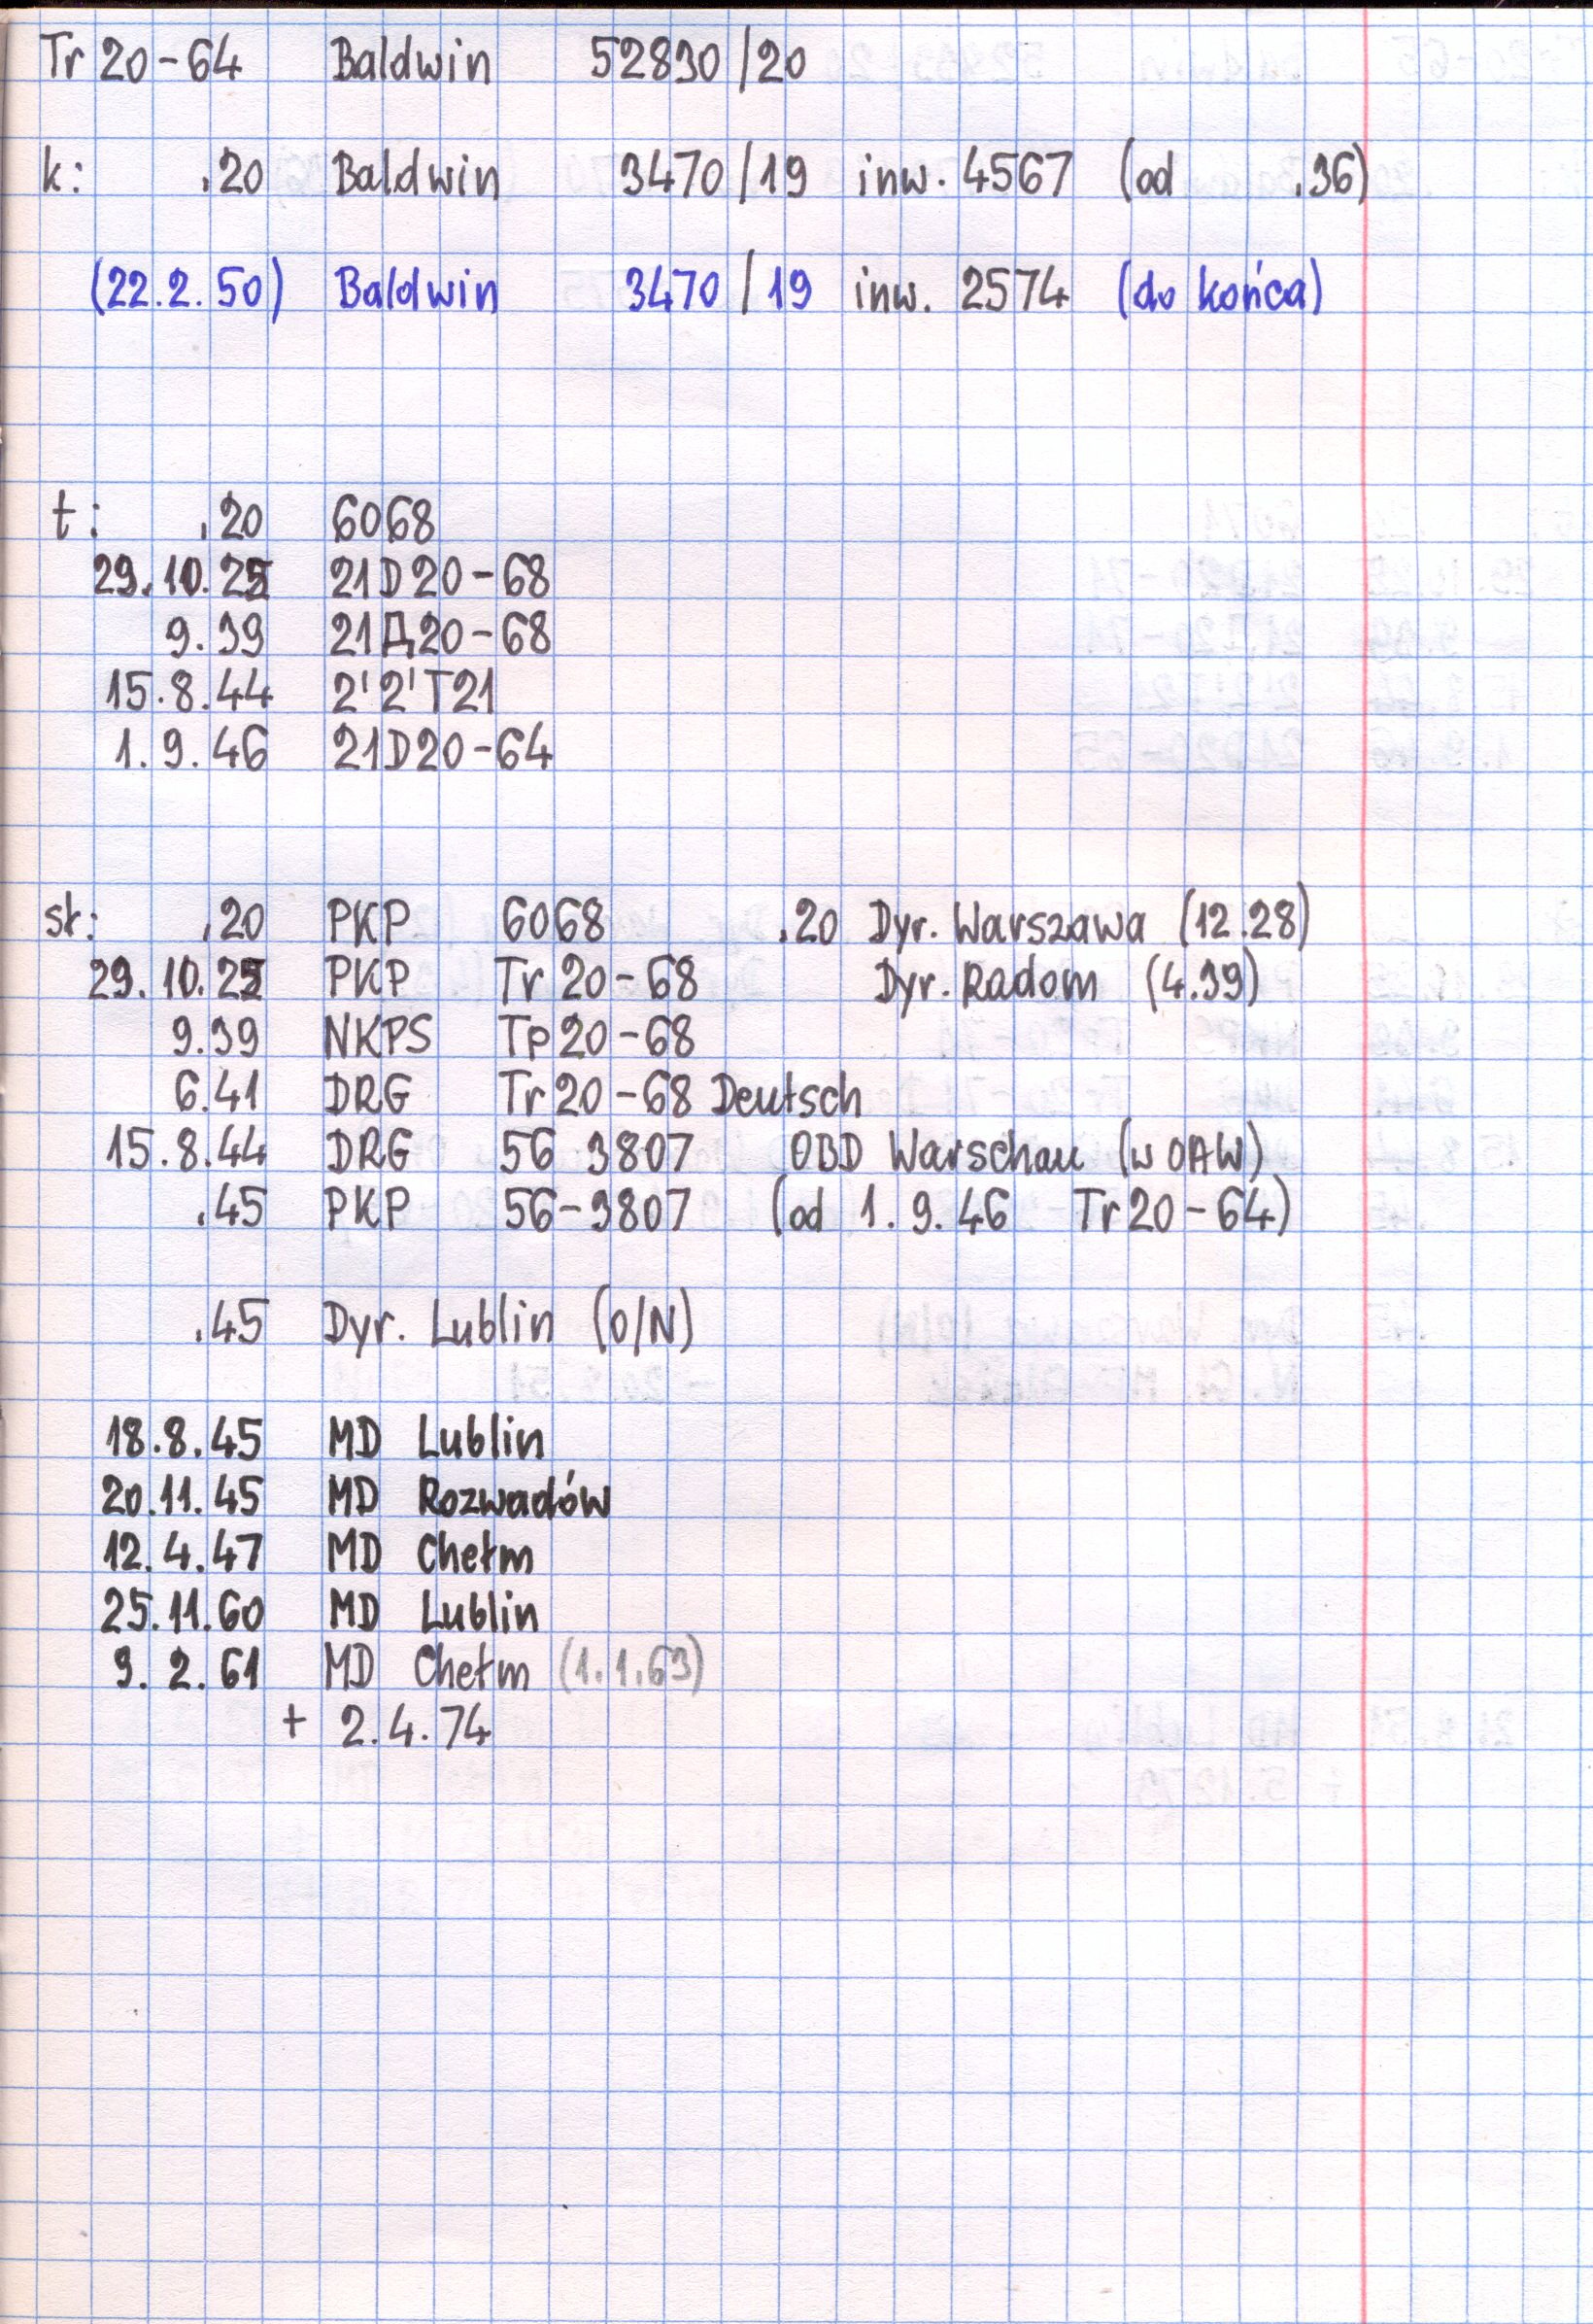 Tr 20-64 Baldwin 52830/20
k: .20 Baldwin 3470/19 inw. 4567 (od .36)
(22.2.50) Baldwin 3470/19 inw. 2574 (do końca)
t: .20 6068
29.10.25 21D20-68
9.39 21Д20-68
15.8.44 2'2'T21
1.9.46 21D20-64
sł: .20 PKP 6068 .20 Dyr. Warszawa (12.28)
29.10.25 PKP Tr 20-68 Dyr. Radom (4.39)
9.39 NKPS Tp 20-68
6.41 DRG Tr 20-68 Deutsch
15.8.44 DRG 56 3807 OBD Warschau (w OAW)
.45 PKP 56-3807 (od 1.9.46 Tr 20-64)
.45 Dyr. Lublin (O/N)
18.8.45 MD Lublin
20.11.45 MD Rozwadów
12.4.47 MD Chełm
25.11.60 MD Lublin
9.2.61 MD Chełm (1.1.63)
+ 2.4.74